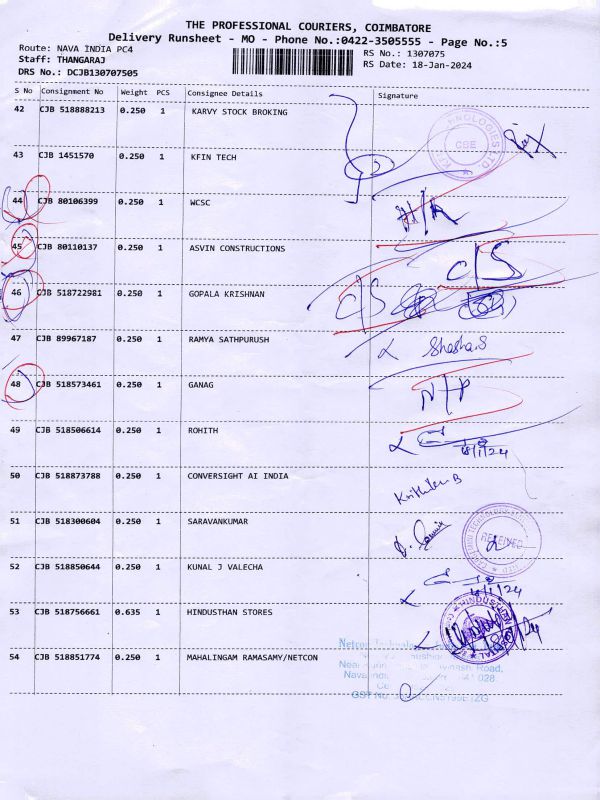 THE PROFESSIONAL COURIERS, COIMBATORE
Delivery Runsheet - MO - Phone No.:0422-3505555 - Page No.:5
Route: NAVA INDIA PC4 RS No.: 1307075
Staff: THANGARAJ RS Date: 18-Jan-2024
DRS No.: DCJB130707505
S No Consignment No Weight PCS Consignee Details Signature
42 CJB 518888213 0.250 1 KARVY STOCK BROKING
CBE
43 CJB 1451570 0.250 1 KFIN TECH
44 CJB 80106399 0.250 1 WCSC
45 CJB 80110137 0.250 1 ASVIN CONSTRUCTIONS C/S
46 CJB 518722981 0.250 1 GOPALA KRISHNAN C/S
47 CJB 89967187 0.250 1 RAMYA SATHPURUSH
48 CJB 518573461 0.250 1 GANAG N/P
49 CJB 518506614 0.250 1 ROHITH
18/1/24
50 CJB 518873788 0.250 1 CONVERSIGHT AI INDIA
51 CJB 518300604 0.250 1 SARAVANKUMAR
RECEIVED
52 CJB 518850644 0.250 1 KUNAL J VALECHA
18/1/24
53 CJB 518756661 0.635 1 HINDUSTHAN STORES
HINDUSTHAN HOSPITAL
54 CJB 518851774 0.250 1 MAHALINGAM RAMASAMY/NETCON
Road,
GST No